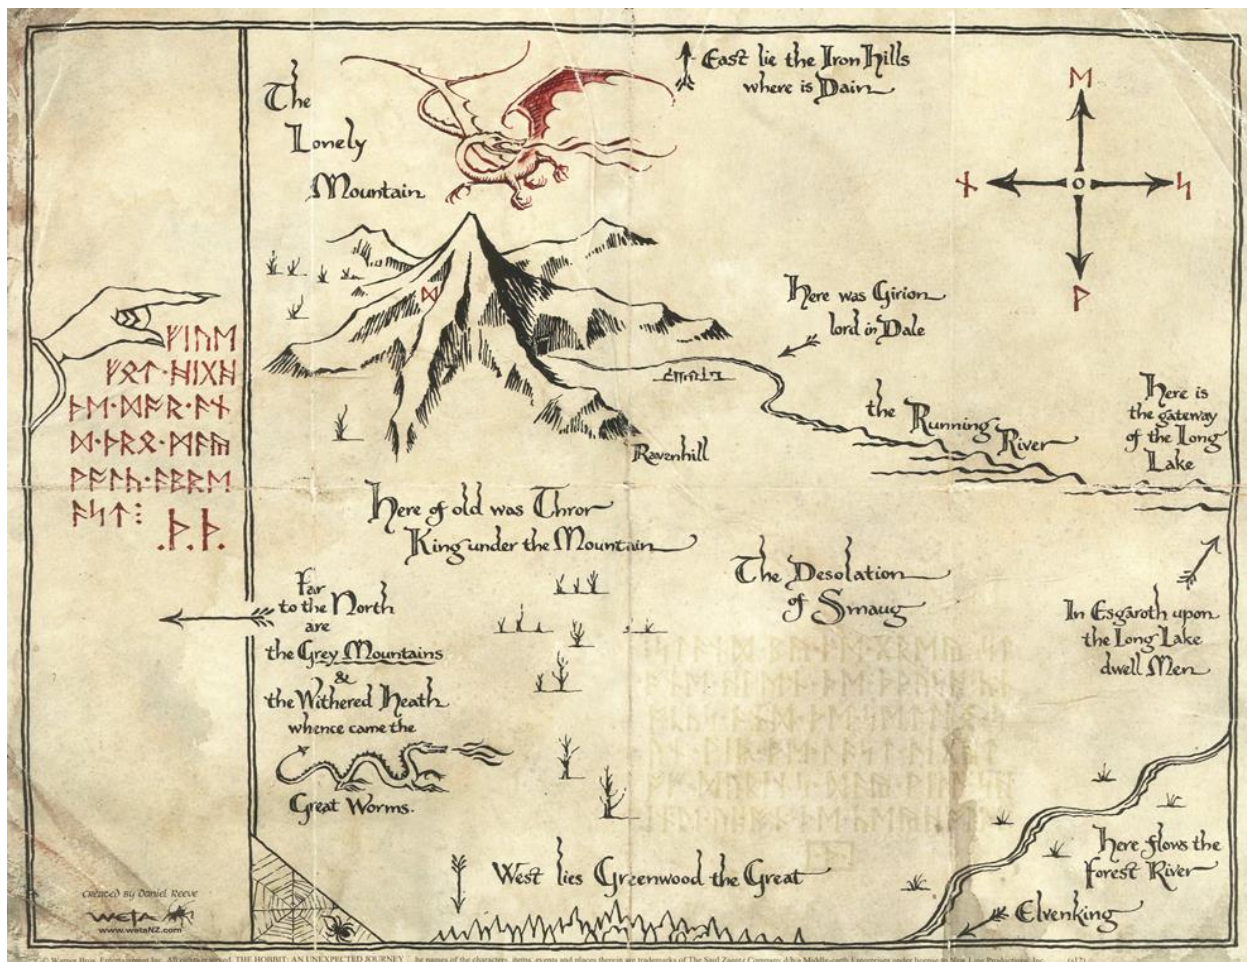 The
Lonely
Mountain
East lie the Iron Hills
where is Dain
ᛖ
ᚾ
ᛋ
ᚹ
ᛞ
Here was Girion
lord in Dale
ᚠᛁᚢᛖ
ᚠᛟᛏ·ᚻᛁᚷᚻ
ᚦᛖ·ᛞᚩᚱ·ᚫᚾ
ᛞ·ᚦᚱᛟ·ᛗᚫᚣ
ᚹᚪᛚᚳ·ᚪᛒᚱᛖ
ᚪᛋᛏ⁝
.ᚦ.ᚦ.
the Running
River
Here is
the gateway
of the Long
Lake
Ravenhill
Here of old was Thror
King under the Mountain
The Desolation
of Smaug
Far
to the North
are
the Grey Mountains
&
the Withered Heath
whence came the
Great Worms.
In Esgaroth upon
the Long Lake
dwell Men
Here flows the
Forest River
West lies Greenwood the Great
Elvenking
Created by Daniel Reeve
WETA
www.wetaNZ.com
© Warner Bros. Entertainment Inc. All rights reserved. THE HOBBIT: AN UNEXPECTED JOURNEY he names of the characters, items, events and places therein are trademarks of The Saul Zaentz Company d/b/a Middle-earth Enterprises under license to New Line Productions, Inc. (s12)